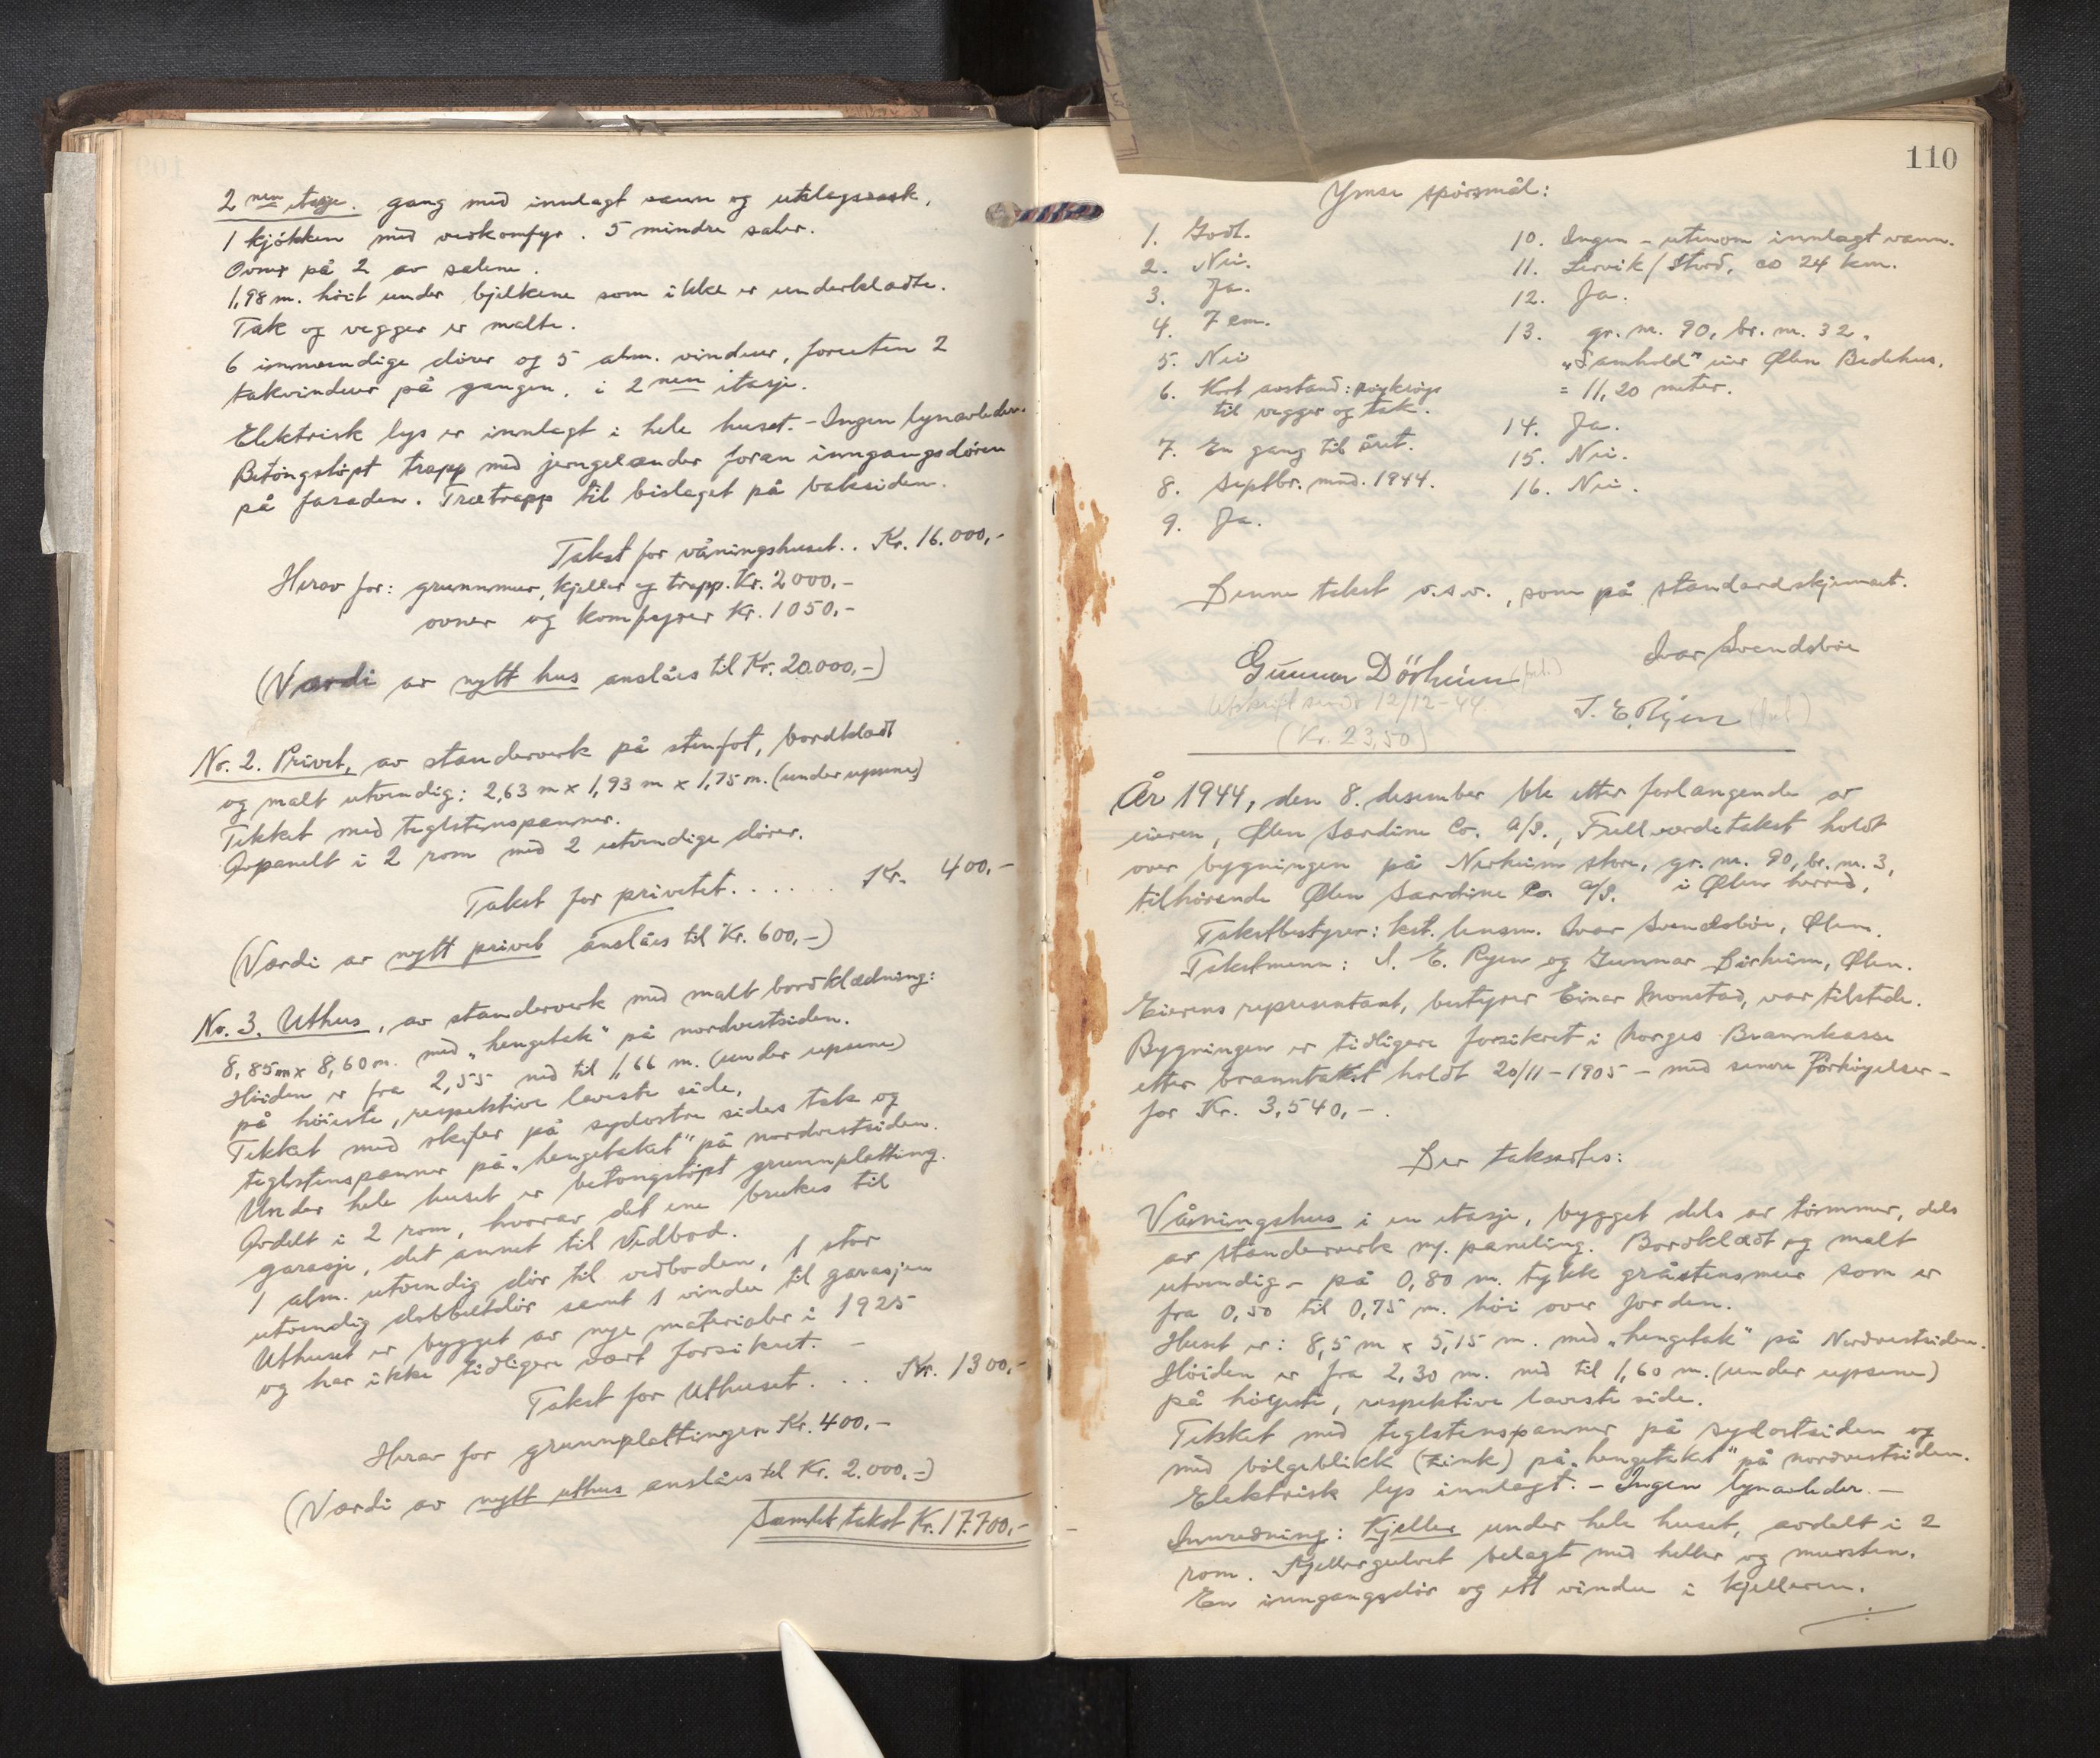 2 nen etasje. gang med innlagt vann og utslagsvask,
1 kjökken med vedkomfyr. 5 mindre saler.
Ovner på 2 av salene.
1,98 m. höit under bjelkene som ikke er underkledte.
Tak og vegger er malte.
6 innvendige dörer og 5 alm. vinduer, foruten 2
takvinduer på gangen, i 2 nen etasje.
Elektrisk lys er innlagt i hele huset. - Ingen lynavleder.
Betongstöpt trapp med jerngelænder foran inngangsdören
på fasaden. Trætrapp til bislaget på baksiden.
Takst for våningshuset.. Kr. 16.000,-
Herav for: grunnmur, kjeller og trapp. Kr. 2000,-
ovner og komfyrer Kr. 1050,-
(Værdi av nytt hus anslåes til Kr. 20.000,-)
Nr. 2. Privet, av standerverk på stenfot, bordklædt
og malt utvendig: 2,63 m x 1,93 m x 1,75 m. (under upsene)
Tekket med teglstenspanner.
Avpanelt i 2 rom med 2 utvendige dörer.
Takst for privetet...... Kr. 400,-
(Værdi av nytt privet anslåes til Kr. 600,-)
Nr. 3. Uthus, av standerverk med malt bordklædning:
8,85m x 8,60m. med „hengetak“ på nordvestsiden.
Höiden er fra 2,55 ned til 1,66 m. (under upsene)
på höieste, respektive laveste side.
Tekket med skifer på sydöstre sides tak og
teglstenspanner på „hengetaket“ på nordvestsiden.
Under hele huset er betongstöpt grunnplatting.
Avdelt i 2 rom, hvorav det ene brukes til
garasje, det annet til Vedbod.
1 alm. utvendig dör til vedboden, 1 stor
utvendig dobbeltdör samt 1 vindu til garasjen
Uthuset er bygget av nye materialer i 1925
og har ikke tidligere vært forsikret. -
Takst for Uthuset... Kr. 1300,-
Herav for grunnplattingen Kr. 400,-
(Værdi av nytt uthus anslåes til Kr. 2.000,-)
Samlet takst Kr. 17.700,-
110
Ymse spörsmål:
1. Godt.
2. Nei.
3. Ja.
4. 7 cm.
5. Nei
6. Kort avstand: röykrör
til vegger og tak.
7. En gang til året.
8. Septbr. mnd. 1944.
9. Ja.
10. Ingen - utenom innlagt vann.
11. Lervik/Stord, ca 24 km.
12. Ja.
13. gr. nr. 90, br. nr. 32,
„Samhold“ eier Ølen Bedehus.
= 11,20 meter.
14. Ja.
15. Nei.
16. Nei.
Denne takst o.s.v., som på standardskjemaet.
Ivar Svendsböe
Gunnar Dörheim
Utskrift sendt 12/12-44.
(Kr. 23,50)
År 1944, den 8. desember ble etter forlangende av
eieren, Ølen Sardine Co. A/S., Fullverdetakst holdt
over bygningen på Nerheim store, gr. nr. 90, br. nr. 3,
tilhörende Ølen Sardine Co. A/S. i Ølen herred.
Takstbestyrer: kst. lensm. Ivar Svendsböe, Ølen.
Takstmenn: J. E. Ryen og Gunnar Dörheim, Ølen.
Eierens representant, bestyrer Einar Monstad, var tilstede.
Bygningen er tidligere forsikret i Norges Brannkasse
etter branntakst holdt 20/11-1905 - med senere forhöyelser -
for Kr. 3,540,-.
Der taksertes:
Våningshus i en etasje, bygget dels av tömmer, dels
av standerverk m. paneling. Bordklædt og malt
utvendig - på 0,80 m. tykk gråstensmur som er
fra 0,50 til 0,75 m. höi over jorden.
Huset er: 8,5 m x 5,15 m. med „hengetak“ på Nordvestsiden.
Höiden er fra 2,30 m. ned til 1,60 m. (under upsene)
på höyeste, respektive laveste side.
Tekket med teglstenspanner på sydostsiden og
med bölgeblikk (zink) på „hengetaket“ på nordvestsiden.
Elektrisk lys innlagt. - Ingen lynavleder. -
Innredning: Kjeller under hele huset, avdelt i 2
rom. Kjellergulvet belagt med heller og mursten.
En inngangsdör og ett vindu i kjelleren.